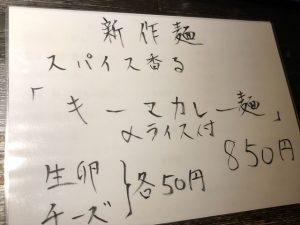 新作麺
スパイス香る
「キーマカレー麺」
〆ライス付
850円
生卵
チーズ
} 各50円